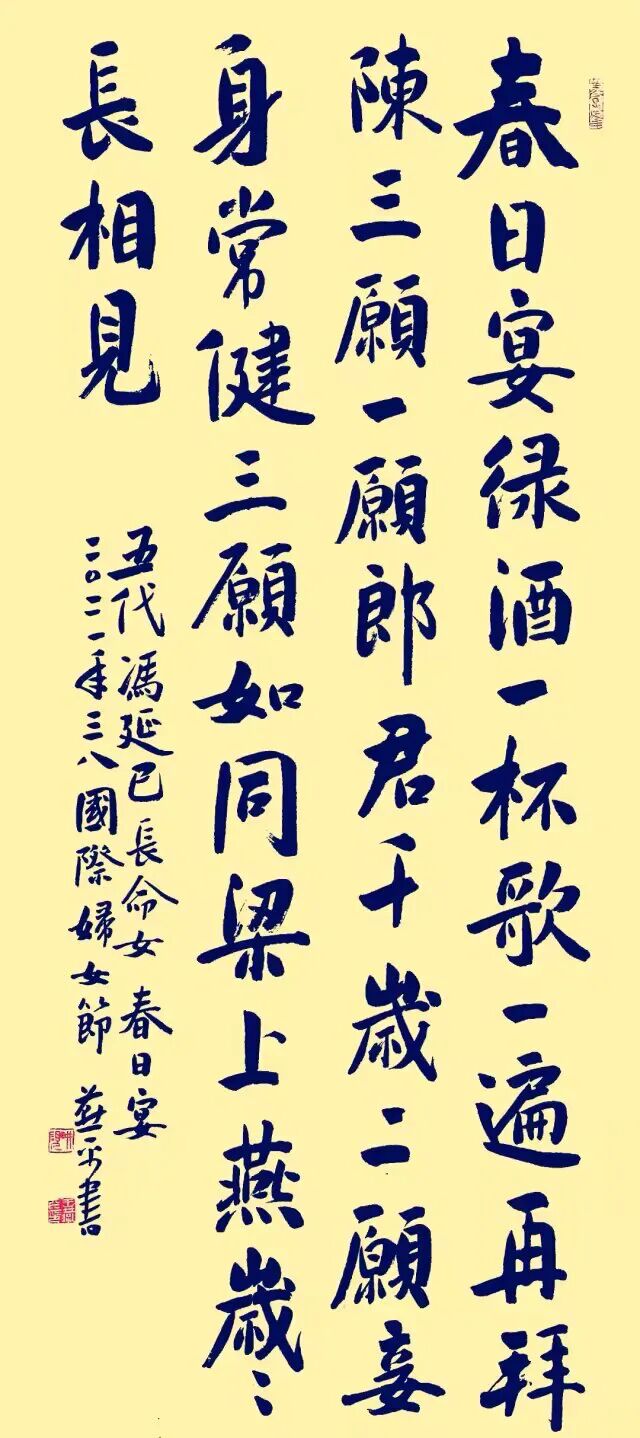 春日宴绿酒一杯歌一遍再拜
陳三願一願郎君千歲二願妾
身常健三願如同梁上燕歲〻
長相見
五代馮延巳長命女春日宴
二〇二一年三八國際婦女節 平書